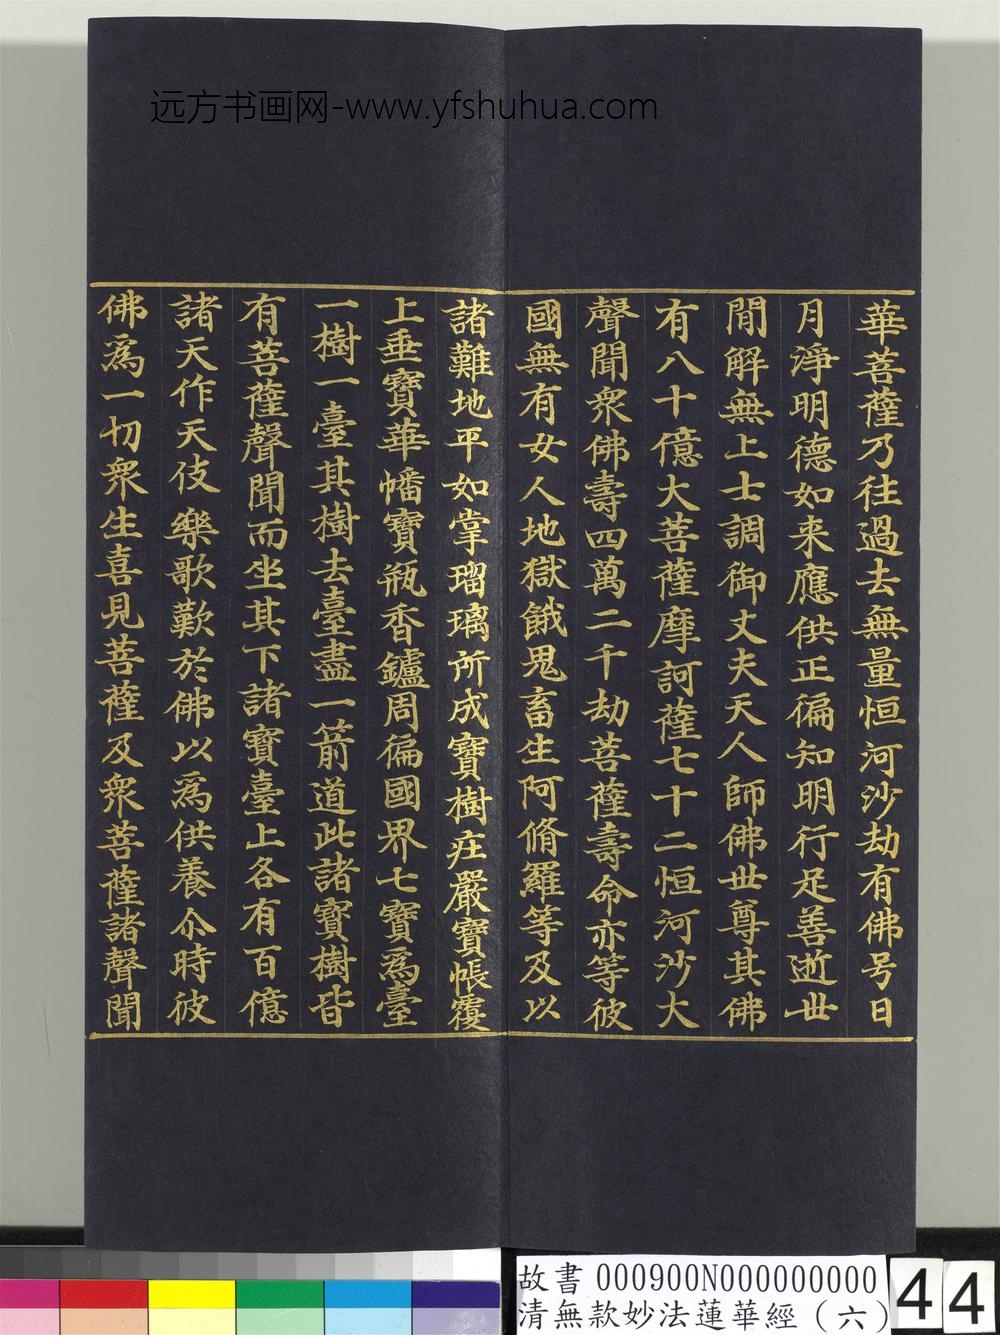 远方书画网-www.yfshuhua.com
華菩薩乃往過去無量恒河沙劫有佛号日
月淨明德如来應供正徧知明行足善逝世
間解無上士調御丈夫天人師佛世尊其佛
有八十億大菩薩摩訶薩七十二恒河沙大
聲聞衆佛壽四萬二千劫菩薩壽命亦等彼
國無有女人地獄餓鬼畜生阿脩羅等及以
諸難地平如掌瑠璃所成寶樹莊嚴寶帳覆
上垂寶華幡寶瓶香鑪周徧國界七寶爲臺
一樹一臺其樹去臺盡一箭道此諸寶樹皆
有菩薩聲聞而坐其下諸寶臺上各有百億
諸天作天伎樂歌歎於佛以爲供養尒時彼
佛爲一切衆生喜見菩薩及衆菩薩諸聲聞
故書 000900N000000000 44
清無款妙法蓮華經（六）